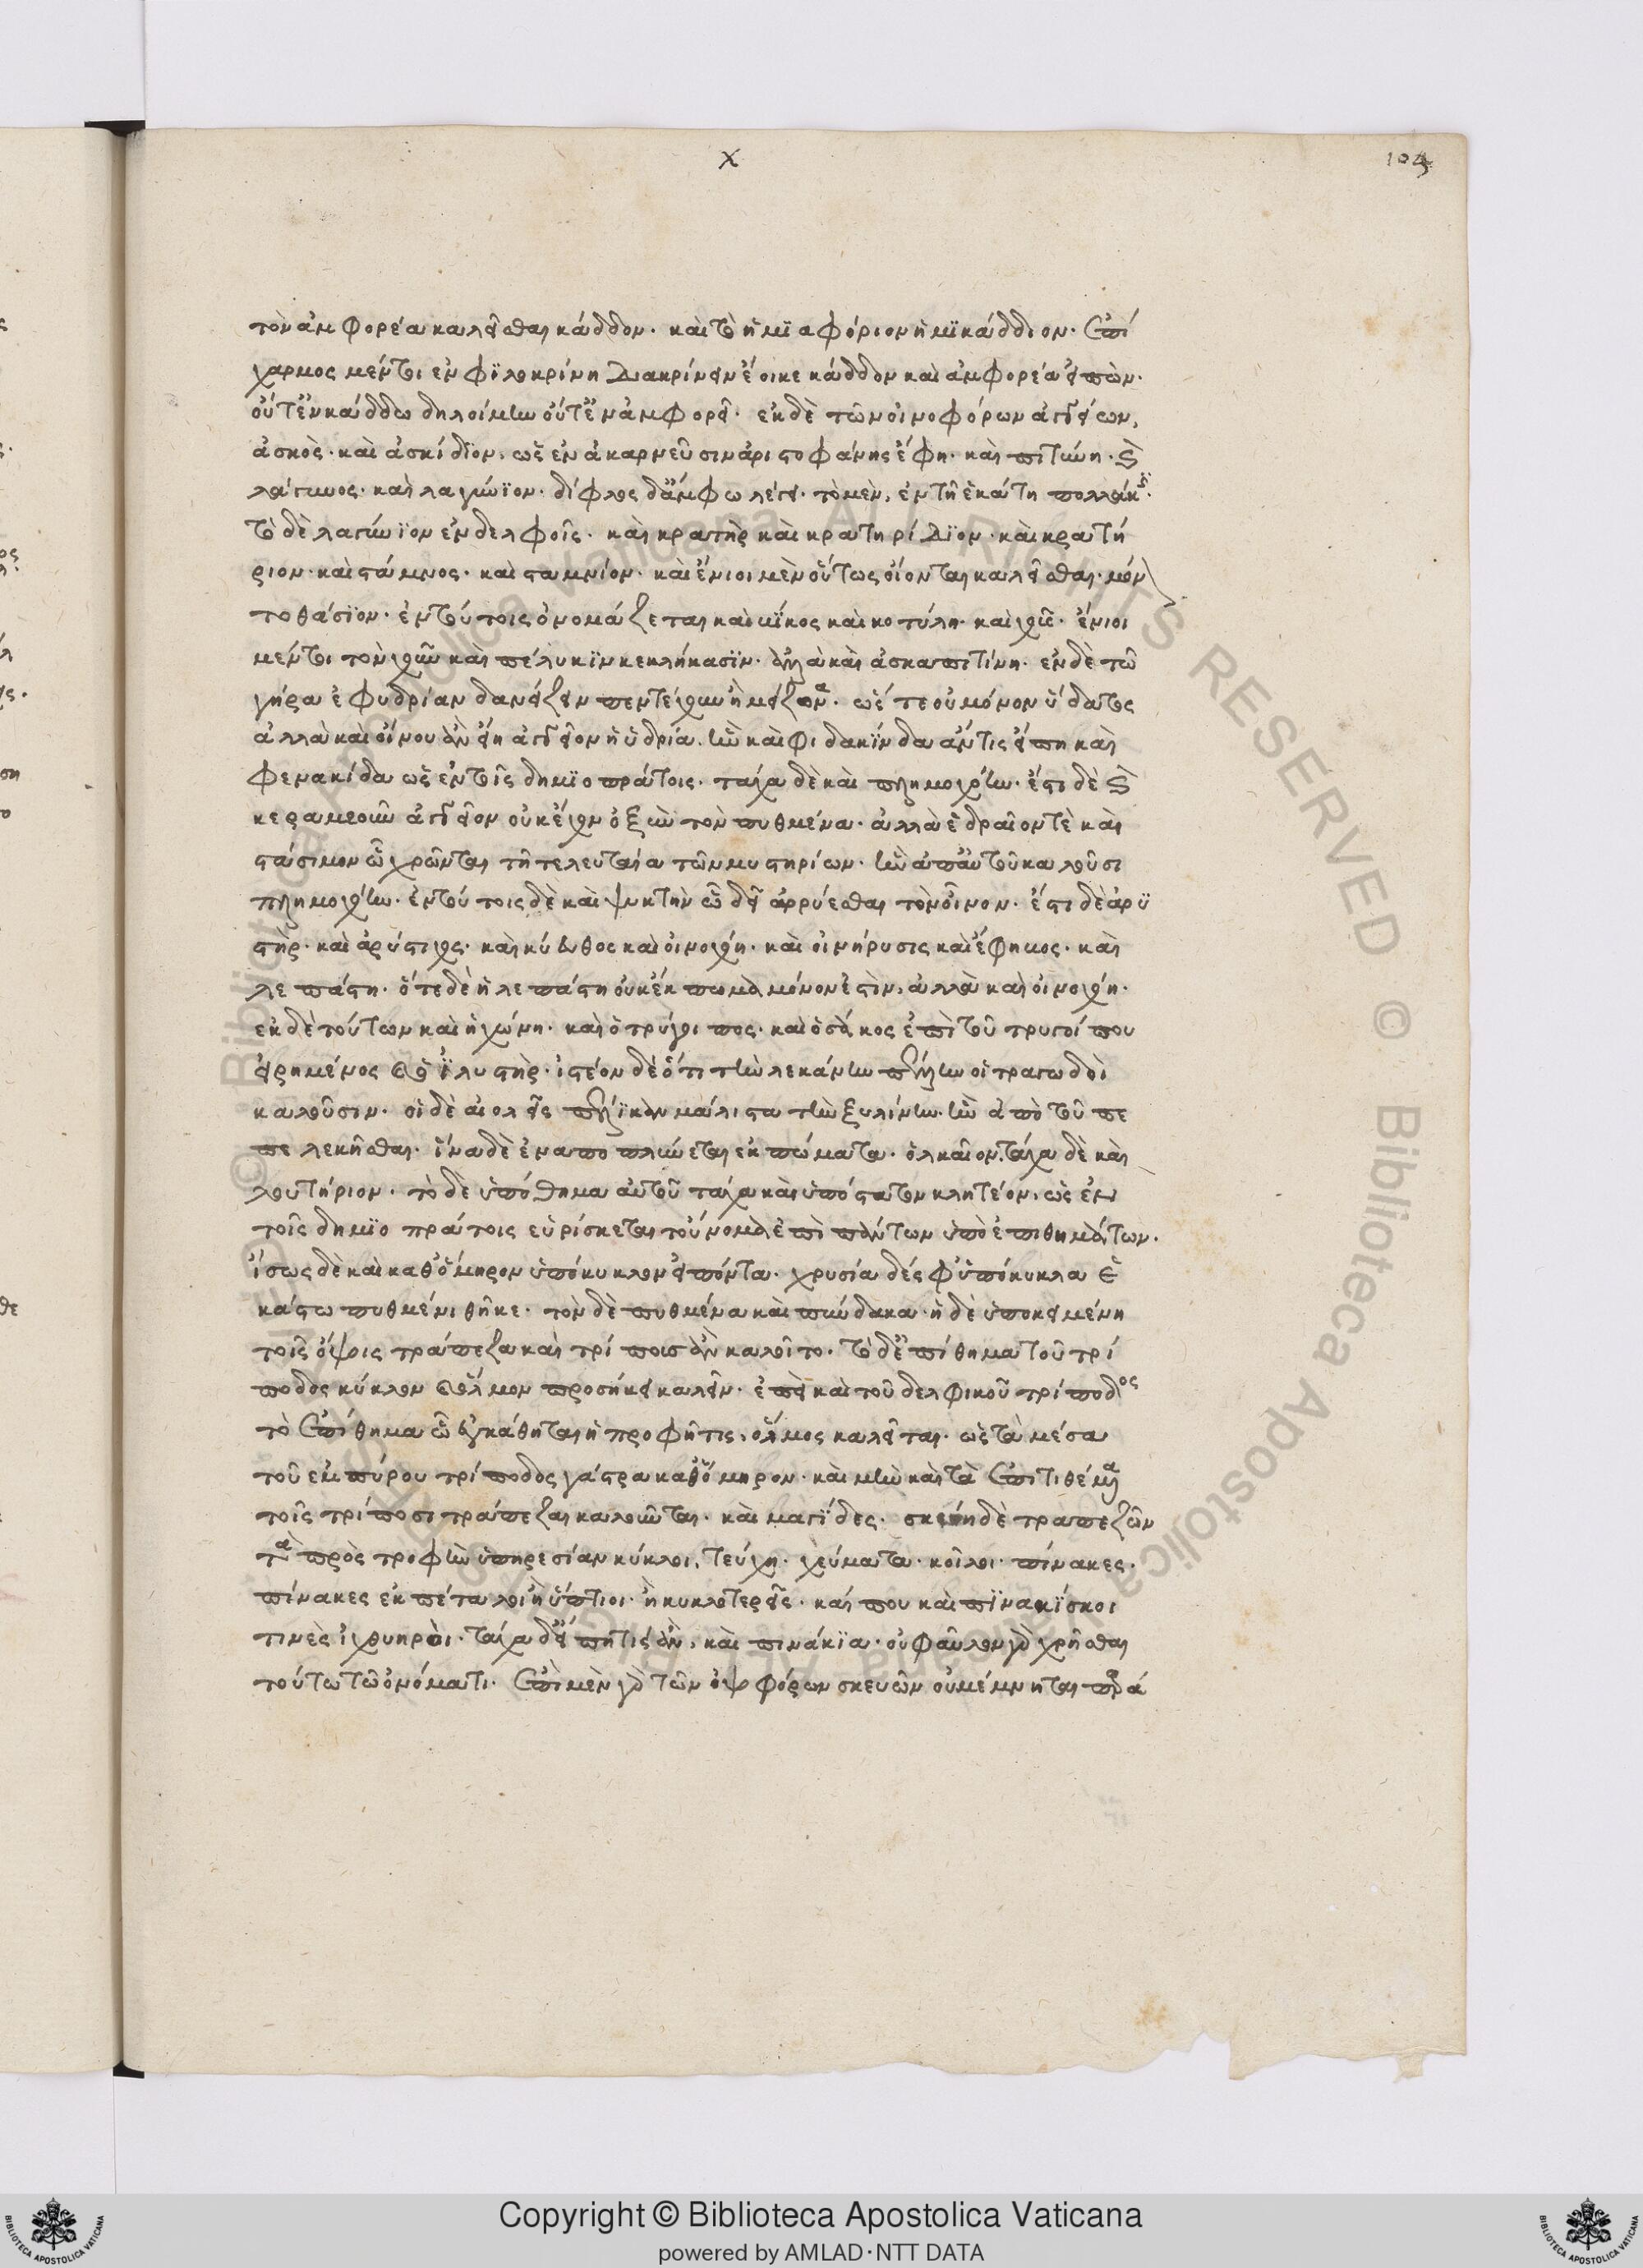 χ
103
τὸν ἀμφορέα καλεῖσθαι κάδδον· καὶ τὸ ἡμϊαφόριον ἡμϊκάδδιον· ἐπί
χαρμος μέντοι ἐν φϊλοκρίνη διακρίνειν ἔοικε κάδδον καὶ ἀμφορέα εἰπών·
οὔτ' ἐν κάδδω δηλοίμην οὔτ' ἐν ἀμφορεῖ· ἐκ δὲ τῶν οἰνοφόρων ἀγγείων,
ἀσκὸς· καὶ ἀσκίδϊον, ὡς ἐν ἀκαρνεῦσιν ἀριστοφάνης ἔφη· καὶ πιτύνη·
λάγυνος· καὶ λαγύνϊον· δίφιλος δ' ἄμφω λέγει· τὸ μὲν, ἐν τῆ ἑκάτη πολλάκις·
τὸ δὲ λαγύνϊον ἐν δελφοῖς· καὶ κρατὴρ καὶ κρατηρίδϊον· καὶ κρατή
ριον· καὶ στάμνος· καὶ σταμνίον· καὶ ἔνιοι μὲν οὕτως οἴονται καλεῖσθαι· μόν
το θάσϊον· ἐν τούτοις ὀνομάζεται καὶ ϊκος καὶ κοτύλη· καὶ χοῦς· ἔνιοι
μέντοι τὸν χοῦν καὶ πέλυκϊν κεκλήκασϊν· ἀλλὰ καὶ ἀσκαπιτίνη· ἐν δὲ τῶ
γήρα ἐφυδρίαν δανείζειν πεντέχουν ἢ μείζονα· ὥστε οὐ μόνον ὕδατος
ἀλλὰ καὶ οἴνου ἂν εἴη ἀγγεῖον ἡ ὑδρία. ἣν καὶ φιδακίνδα ἄν τις εἴπη καὶ
φενακίδα ὡς ἐν τοῖς δημϊοπράτοις· τάχα δὲ καὶ πλημοχόην· ἔστι δὲ
κεραμεοῦν ἀγγεῖον οὐκ ἔχον ὀξὺν τὸν πυθμένα· ἀλλὰ ἑδραῖόν τὲ καὶ
στάσιμον ὧ χρῶνται τῆ τελευταία τῶν μυστηρίων· ἣν ἀπ' αὐτοῦ καλοῦσι
πλημοχόην· ἐν τούτοις δὲ καὶ ψυκτὴν ὧ δεῖ ἀρρύεσθαι τὸν οἶνον· ἔστι δὲ ἀρϋ
στὴρ· καὶ ἀρύστιχος· καὶ κύαθος καὶ οἰνοχόη· καὶ οἰνήρυσις καὶ ἔφηβος· καὶ
λεπάστη· ὅτε δὲ ἡ λεπάστη οὐκ ἔκπωμα μόνον ἐστὶν, ἀλλὰ καὶ οἰνοχόη·
ἐκ δὲ τούτων καὶ ἡ χώνη· καὶ ὁ τρύγοιπος· καὶ ὁ σάκος ἐπὶ τοῦ τρυγοίπου
εἰρημένος ϊλυστὴρ· ἰστέον δὲ ὅτι τὴν λεκάνην οἱ τραγωδοὶ
καλοῦσιν· οἱ δὲ αἰολεῖς μάλιστα τὴν ξυλίνην· ἣν ἀπὸ τοῦ πε
πελεκῆσθαι· ἵνα δὲ ἐναποπλύνεται ἐκπώματα· ὁλκαῖον. τάχα δὲ καὶ
λουτήριον· τὸ δὲ ὑπόθημα αὐτοῦ τάχα καὶ ὑπόστατον κλητέον, ὡς ἐν
τοῖς δημϊοπράτοις εὑρίσκεται τοὔνομα ἐπὶ πάντων ὑπὸ ἐπιθημάτων·
ἴσως δὲ καὶ καθ' ὅμηρον ὑπόκυκλον εἰπόντα· χρυσία δέ σφ' ὑπόκυκλα ἑ
κάστω πυθμένι θῆκε· τὸν δὲ πυθμένα καὶ πύνδακα· ἡ δὲ ὑποκειμένη
τοῖς ὄψοις τράπεζα καὶ τρίποισ ἂν καλοῖτο· τὸ δ' ἐπίθημα τοῦ τρί
ποδος κύκλον ὅλμον προσήκει καλεῖν· ἐπεὶ καὶ τοῦ δελφικοῦ τρίποδος
τὸ ἐπίθημα ὧ ἐγκάθηται ἡ προφῆτις, ὅλμος καλεῖται· ὡς τὰ μέσα
τοῦ ἐμπύρου τρίποδος γάστρα καθ' ὅμηρον· καὶ μὴν καὶ τὰ ἐπιτιθέμενα
τοῖς τρίποσι τράπεζαι καλοῦνται· καὶ μαγΐδες· σκεύη δὲ τραπεζῶν
τὰ πρὸς τροφὴν ὑπηρεσίαν κύκλοι, τεύχη· χεύματα· κοῖλοι· πίνακες·
πίνακες ἐκπέταλοι ἢ ὕπτιοι· ἢ κυκλοτερεῖς· καί που καὶ πϊνακΐσκοι
τινὲς ἰχθυηροὶ· τάχα δ' εἴπη τις ἂν, καὶ πινάκϊα· οὐ φαῦλον γὰρ χρῆσθαι
τούτω τῶ ὀνόματι· ἐπὶ μὲν γὰρ τῶν ὀψοφόρων σκευῶν οὐ μέμνηται παρά
Copyright © Biblioteca Apostolica Vaticana
powered by AMLAD·NTT DATA